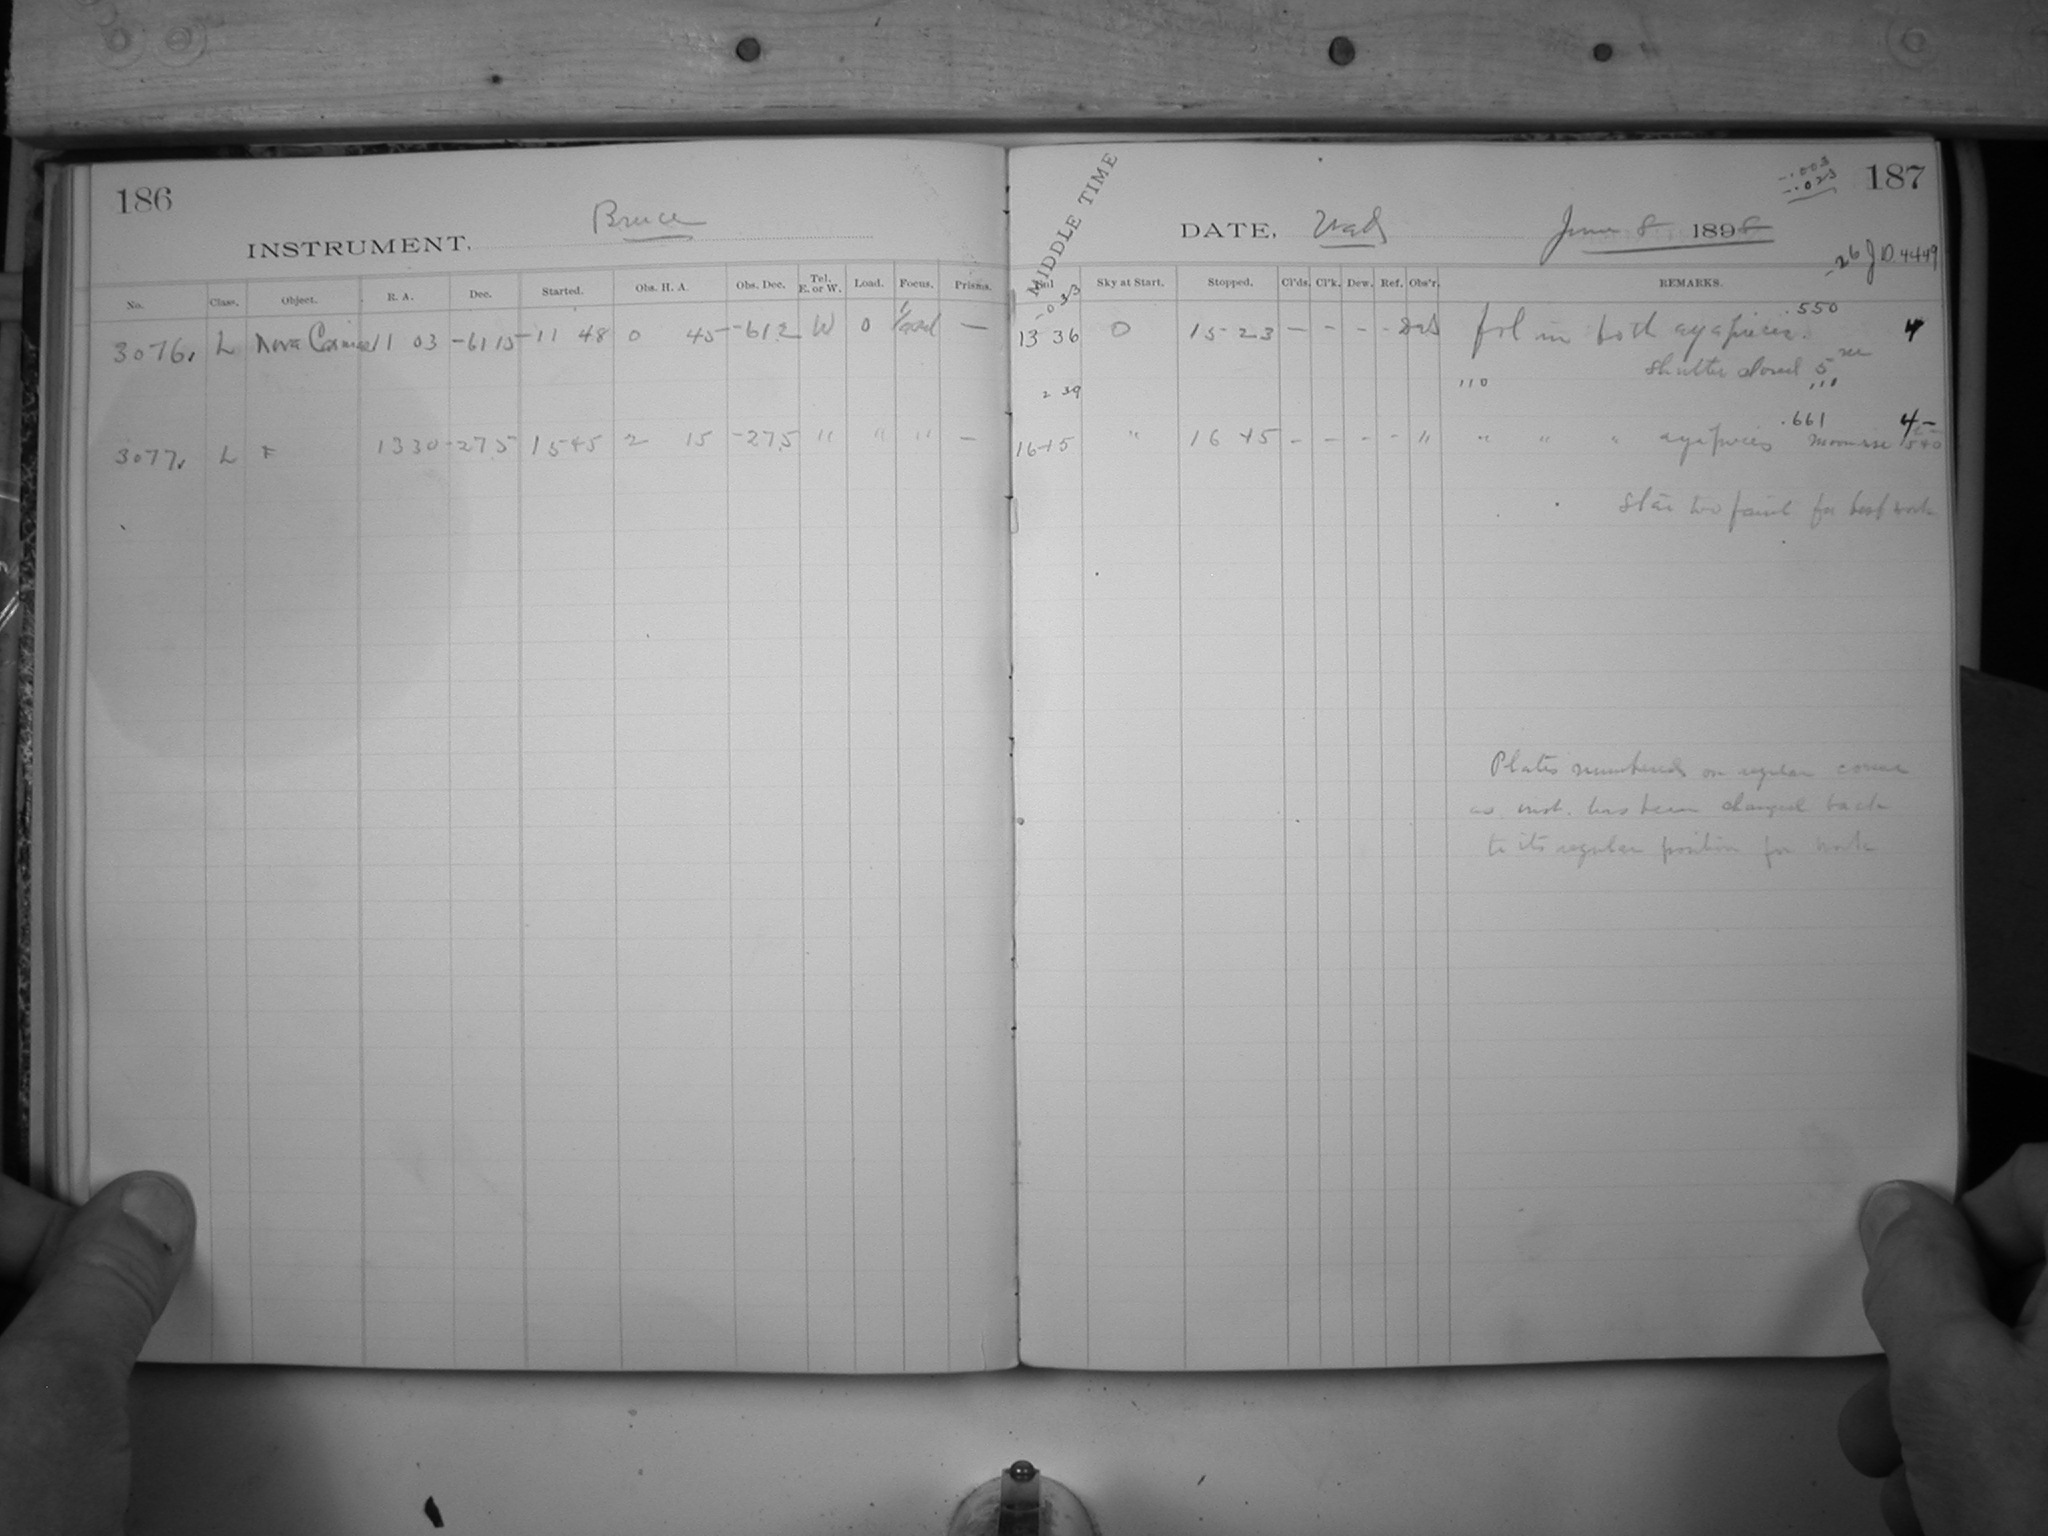 186
INSTRUMENT, Bruce
No. Class. Object. R. A. Dec. Started. Obs. H. A. Obs. Dec. Tel. E. or W. Load. Focus. Prisms.
3076. L Nova Carinae 11 03 -61 15 11 48 0 45 -61.2 W 0 —
3077. L F 13 30 -27.5 15 45 2 15 -27.5 W " " " —
MIDDLE TIME
-.003
-.023
187
DATE, June 8 1898
-26 J D 4449
Sky at Start. Stopped. Cl'ds. Cl'k. Dew. Ref. Obs'r. REMARKS.
-033
13 36 0 15 23 – – – – fol in both eyepieces. .550 4
shutter closed 5 m
2 39 110 111
16 15 " 16 45 – – – – " " " " eyepieces .661 Moonrise 1540 4-
Star too faint for best work
Plates numbered on regular corner
as inst. has been changed back
to its regular position for work